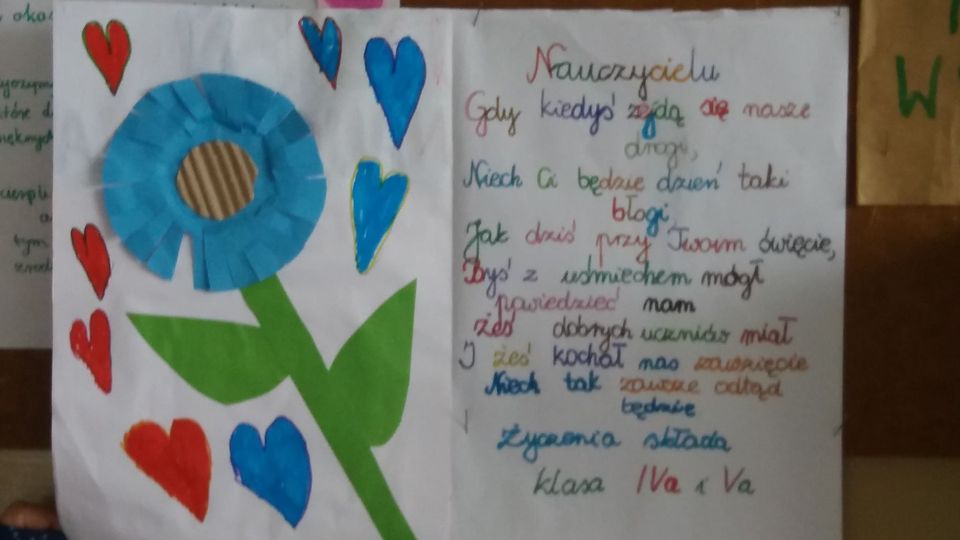 Nauczycielu
Gdy kiedyś zejdą się nasze
drogi,
Niech Ci będzie dzień taki
błogi
Jak dziś przy Twoim święcie,
Byś z uśmiechem mógł
powiedzieć nam
żeś dobrych uczniów miał
I żeś kochał nas zawzięcie
Niech tak zawsze odtąd
będzie
Życzenia składa
klasa IVa i Va